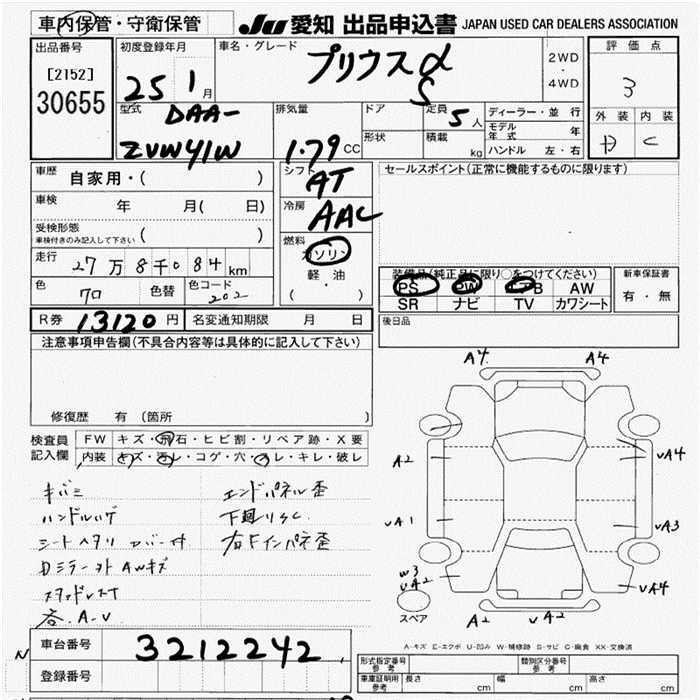 車内保管・守衛保管
JU 愛知 出品申込書 JAPAN USED CAR DEALERS ASSOCIATION
出品番号
[2152]
30655
初度登録年月
25 1 月
車名・グレード
プリウスα
S
2WD
・
4WD
評価点
3
外装 内装
D C
型式
DAA-
ZVW41W
排気量
1.79 CC
ドア
形状
定員
5 人
積載
kg
ディーラー・並行
モデル年式 年
ハンドル 左・右
車歴
自家用・( )
車検 年 月( 日)
受検形態
車検付きのみ記入して下さい ( )
走行
27万8千084km
色
70
色替
色コード
202
シフト
AT
冷房
AAC
燃料
ガソリン
軽・油
( )
セールスポイント(正常に機能するものに限ります)
装備品(純正品に限り○をつけてください)
PS PW エアB AW
SR ナビ TV カワシート
新車保証書
有・無
R券 13120 円
名変通知期限 月 日
後日品
注意事項申告欄(不具合内容等は具体的に記入して下さい)
修復歴 有(箇所 )
検査員
記入欄
FW キズ・飛石・ヒビ割・リペア跡・X要
内装 キズ・汚レ・コゲ・穴・スレ・キレ・破レ
キバミ
ハンドルハゲ
シートヘタリ
エンドパネル歪
下廻りSC
右Fインパネ歪
A4 A4
A2 uA4
uA1 uA3
W3
uA2
uA4
スペア
A2 uA2
A-キズ E-エクボ U-凹み W-補修跡 S-サビ C-腐食 XX-交換済
車台番号 3212242
登録番号
形式指定番号
参考
類別区分番号
参考
車庫証明用
参考
長さ cm
幅 cm
高さ cm